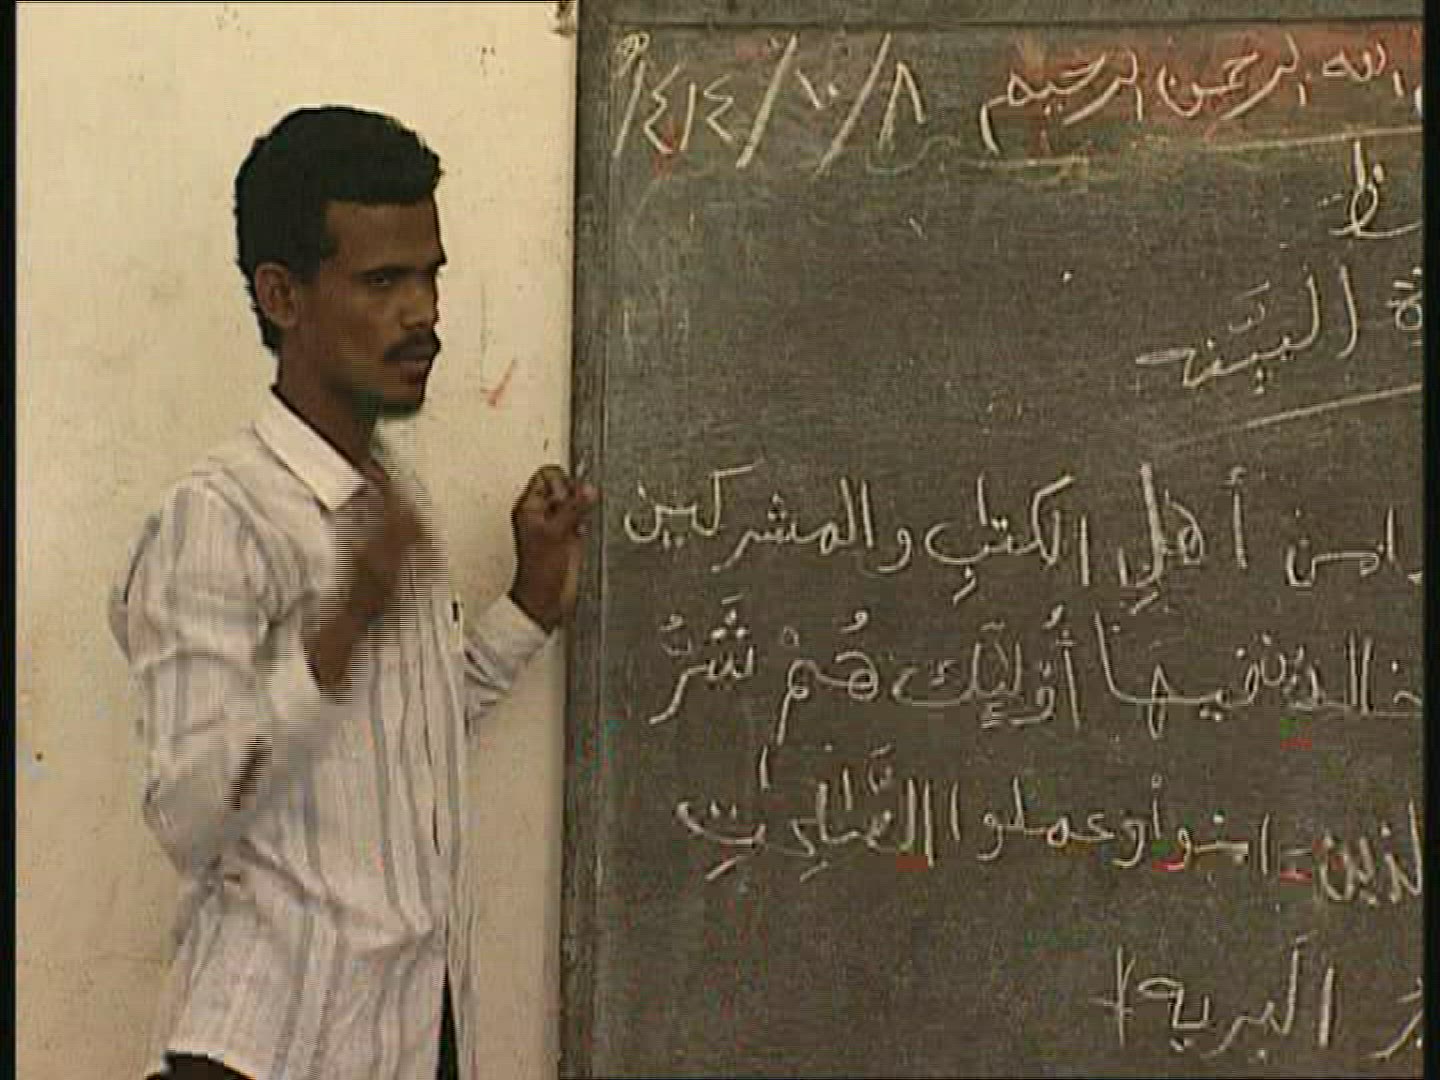 الله الرحمن الرحيم ٨/١٠/١٤١٤
البينه
من أهلِ الكتابِ والمشركين
خالدين فيهَا أُوْلَٰئِك هُمْ شَرُّ
لذين امنوا وعملوا الصَّالِحَاتِ
البريه